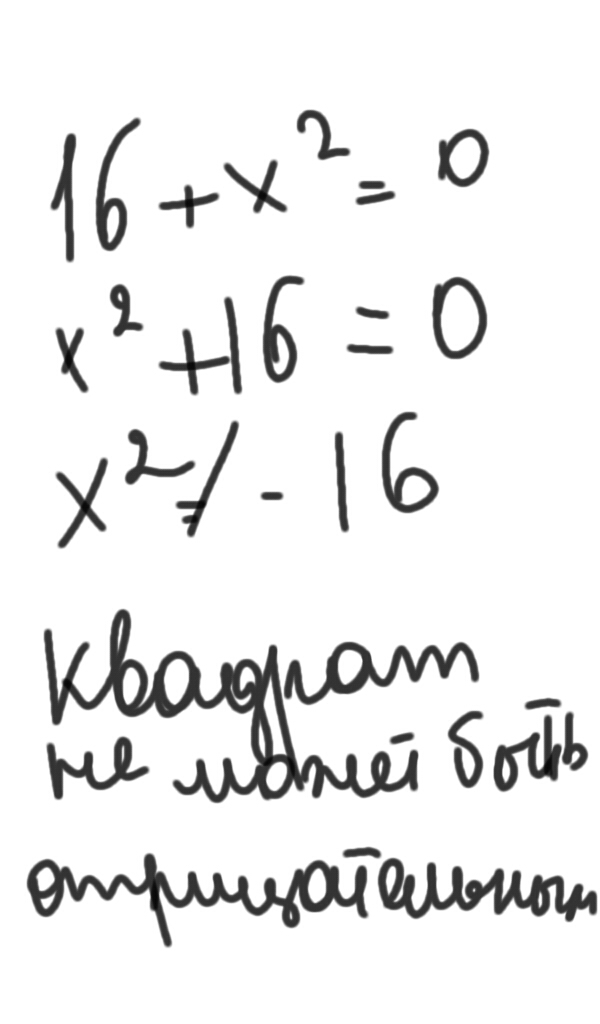 16 + x² = 0
x² + 16 = 0
x² ≠ - 16
Квадрат
не может быть
отрицательным